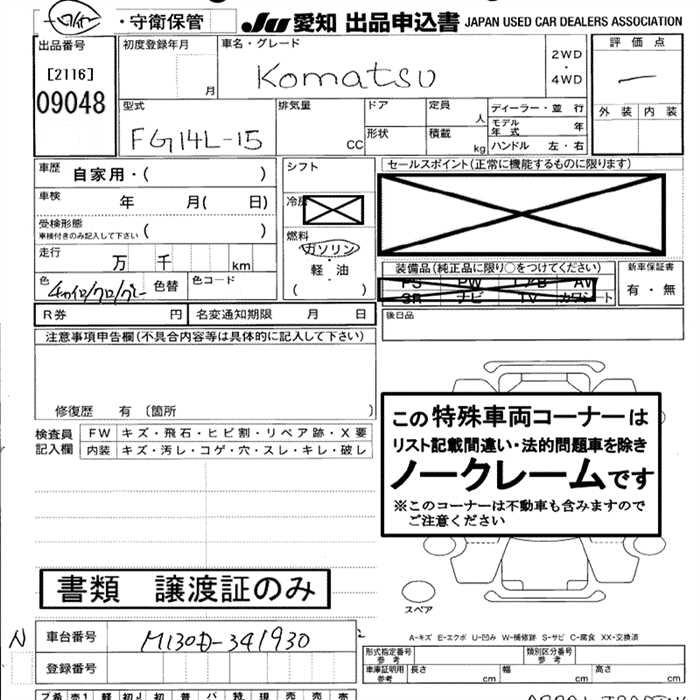 ・守衛保管 JU 愛知 出品申込書 JAPAN USED CAR DEALERS ASSOCIATION
出品番号 初度登録年月 月 車名・グレード Komatsu 2WD ・ 4WD 評価点
[2116]
09048
外装 内装
型式 FG14L-15 排気量 CC ドア 形状 定員 人 積載 kg ディーラー・並 行
モデル年式 年
ハンドル 左・右
車歴 自家用・( )
車検 年 月( 日)
受検形態 ( )
車検付きのみ記入して下さい
走行 万 千 km
色 色替 色コード
シフト
冷房
燃料
ガソリン
・
軽・油
( )
セールスポイント(正常に機能するものに限ります)
装備品(純正品に限り○をつけてください)
PS PW エアB AW
SR ナビ TV カワシート
新車保証書
有・無
R券 円 名変通知期限 月 日
後日品
注意事項申告欄(不具合内容等は具体的に記入して下さい)
修復歴 有 〔箇所 〕
検査員記入欄
FW キズ・飛石・ヒビ割・リペア跡・X要
内装 キズ・汚レ・コゲ・穴・スレ・キレ・破レ
この特殊車両コーナーは
リスト記載間違い・法的問題車を除き
ノークレームです
※このコーナーは不動車も含みますので
ご注意ください
書類 譲渡証のみ
スペア
N 車台番号 M130D-341930
登録番号
A-キズ E-エクボ U-凹み W-補修跡 S-サビ C-腐食 XX-交換済
形式指定番号 参考 類別区分番号 参考
車庫証明用 参考 長さ cm 幅 cm 高さ cm